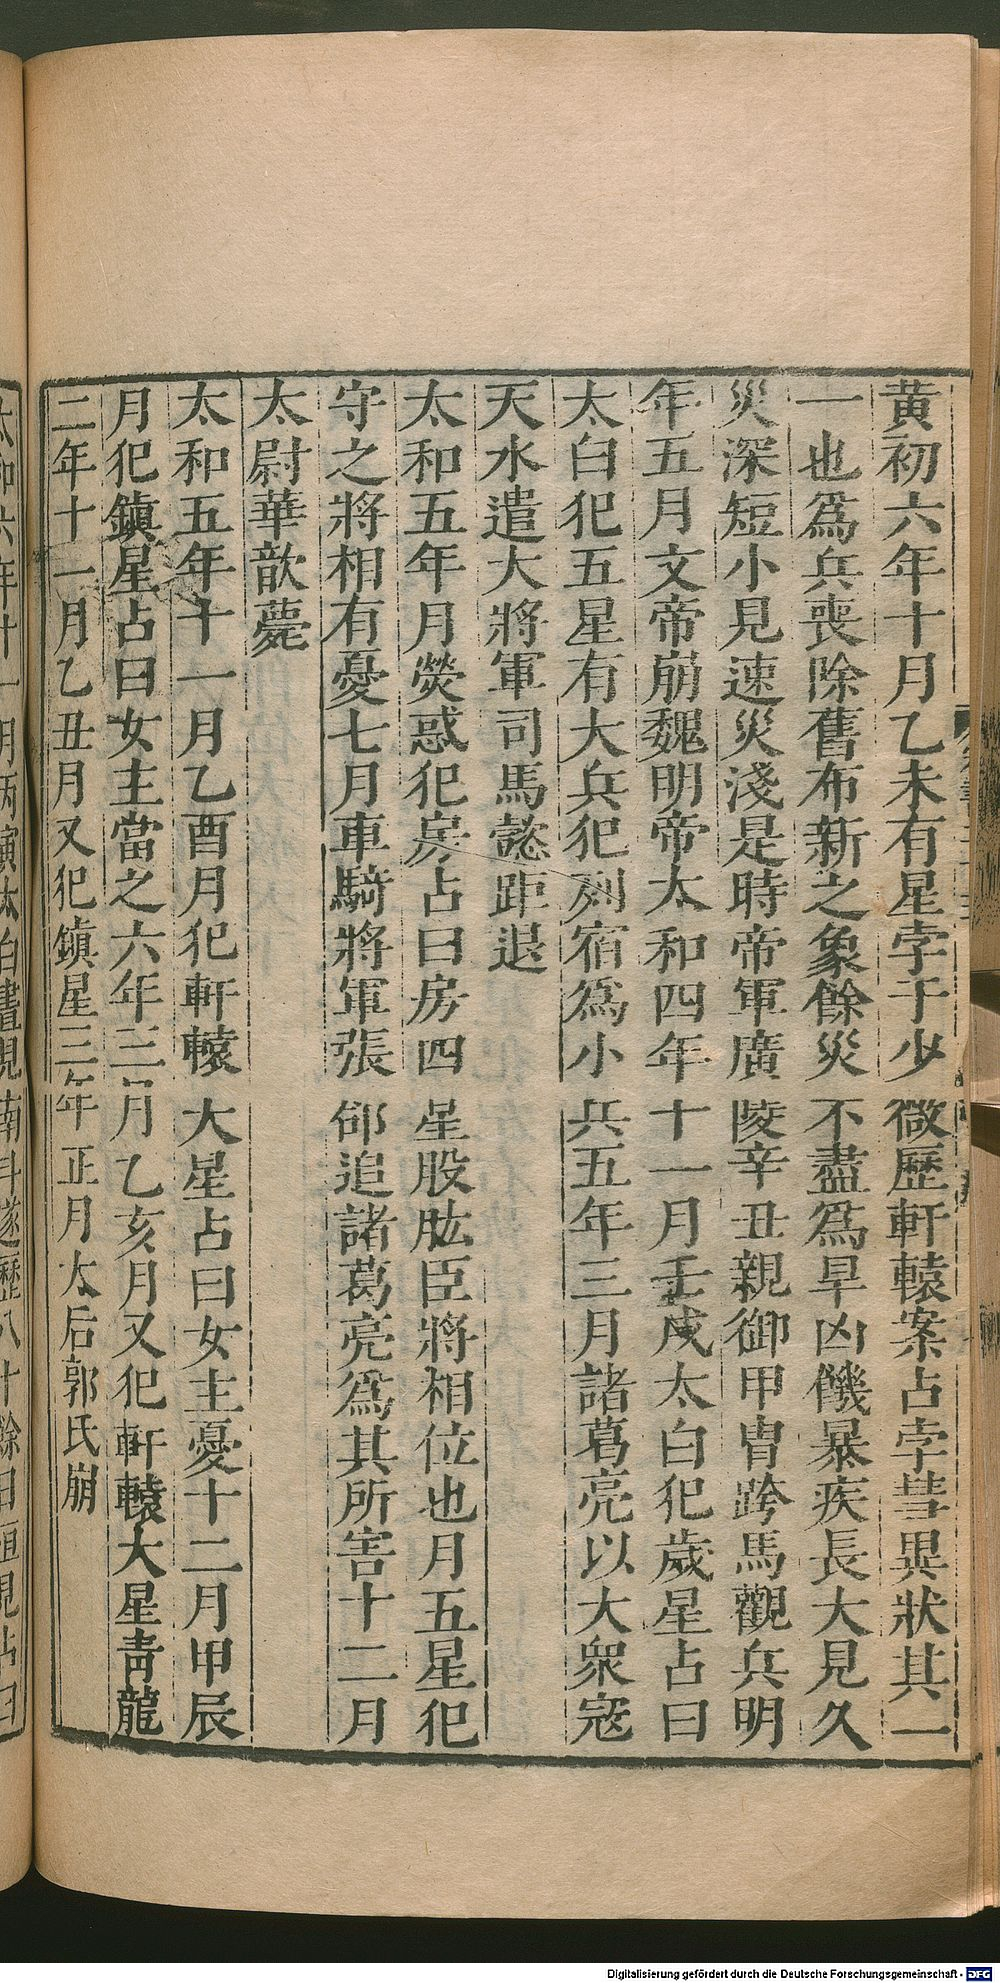 黃初六年十月乙未有星孛于少微歷軒轅案占孛彗異狀其一
一也爲兵喪除舊布新之象餘災不盡爲旱凶饑暴疾長大見久
災深短小見速災淺是時帝軍廣陵辛丑親御甲冑跨馬觀兵明
年五月文帝崩魏明帝太和四年十一月壬戌太白犯歲星占曰
太白犯五星有大兵犯列宿爲小兵五年三月諸葛亮以大衆寇
天水遣大將軍司馬懿距退
太和五年月熒惑犯房占曰房四星股肱臣將相位也月五星犯
守之將相有憂七月車騎將軍張郃追諸葛亮爲其所害十二月
太尉華歆薨
太和五年十一月乙酉月犯軒轅大星占曰女主憂十二月甲辰
月犯鎭星占曰女主當之六年三月乙亥月又犯軒轅大星靑龍
二年十一月乙丑月又犯鎭星三年正月太后郭氏崩
太和六年十一月丙寅太白晝見南斗遂歷八十餘日恒見占曰
Digitalisierung gefördert durch die Deutsche Forschungsgemeinschaft - DFG